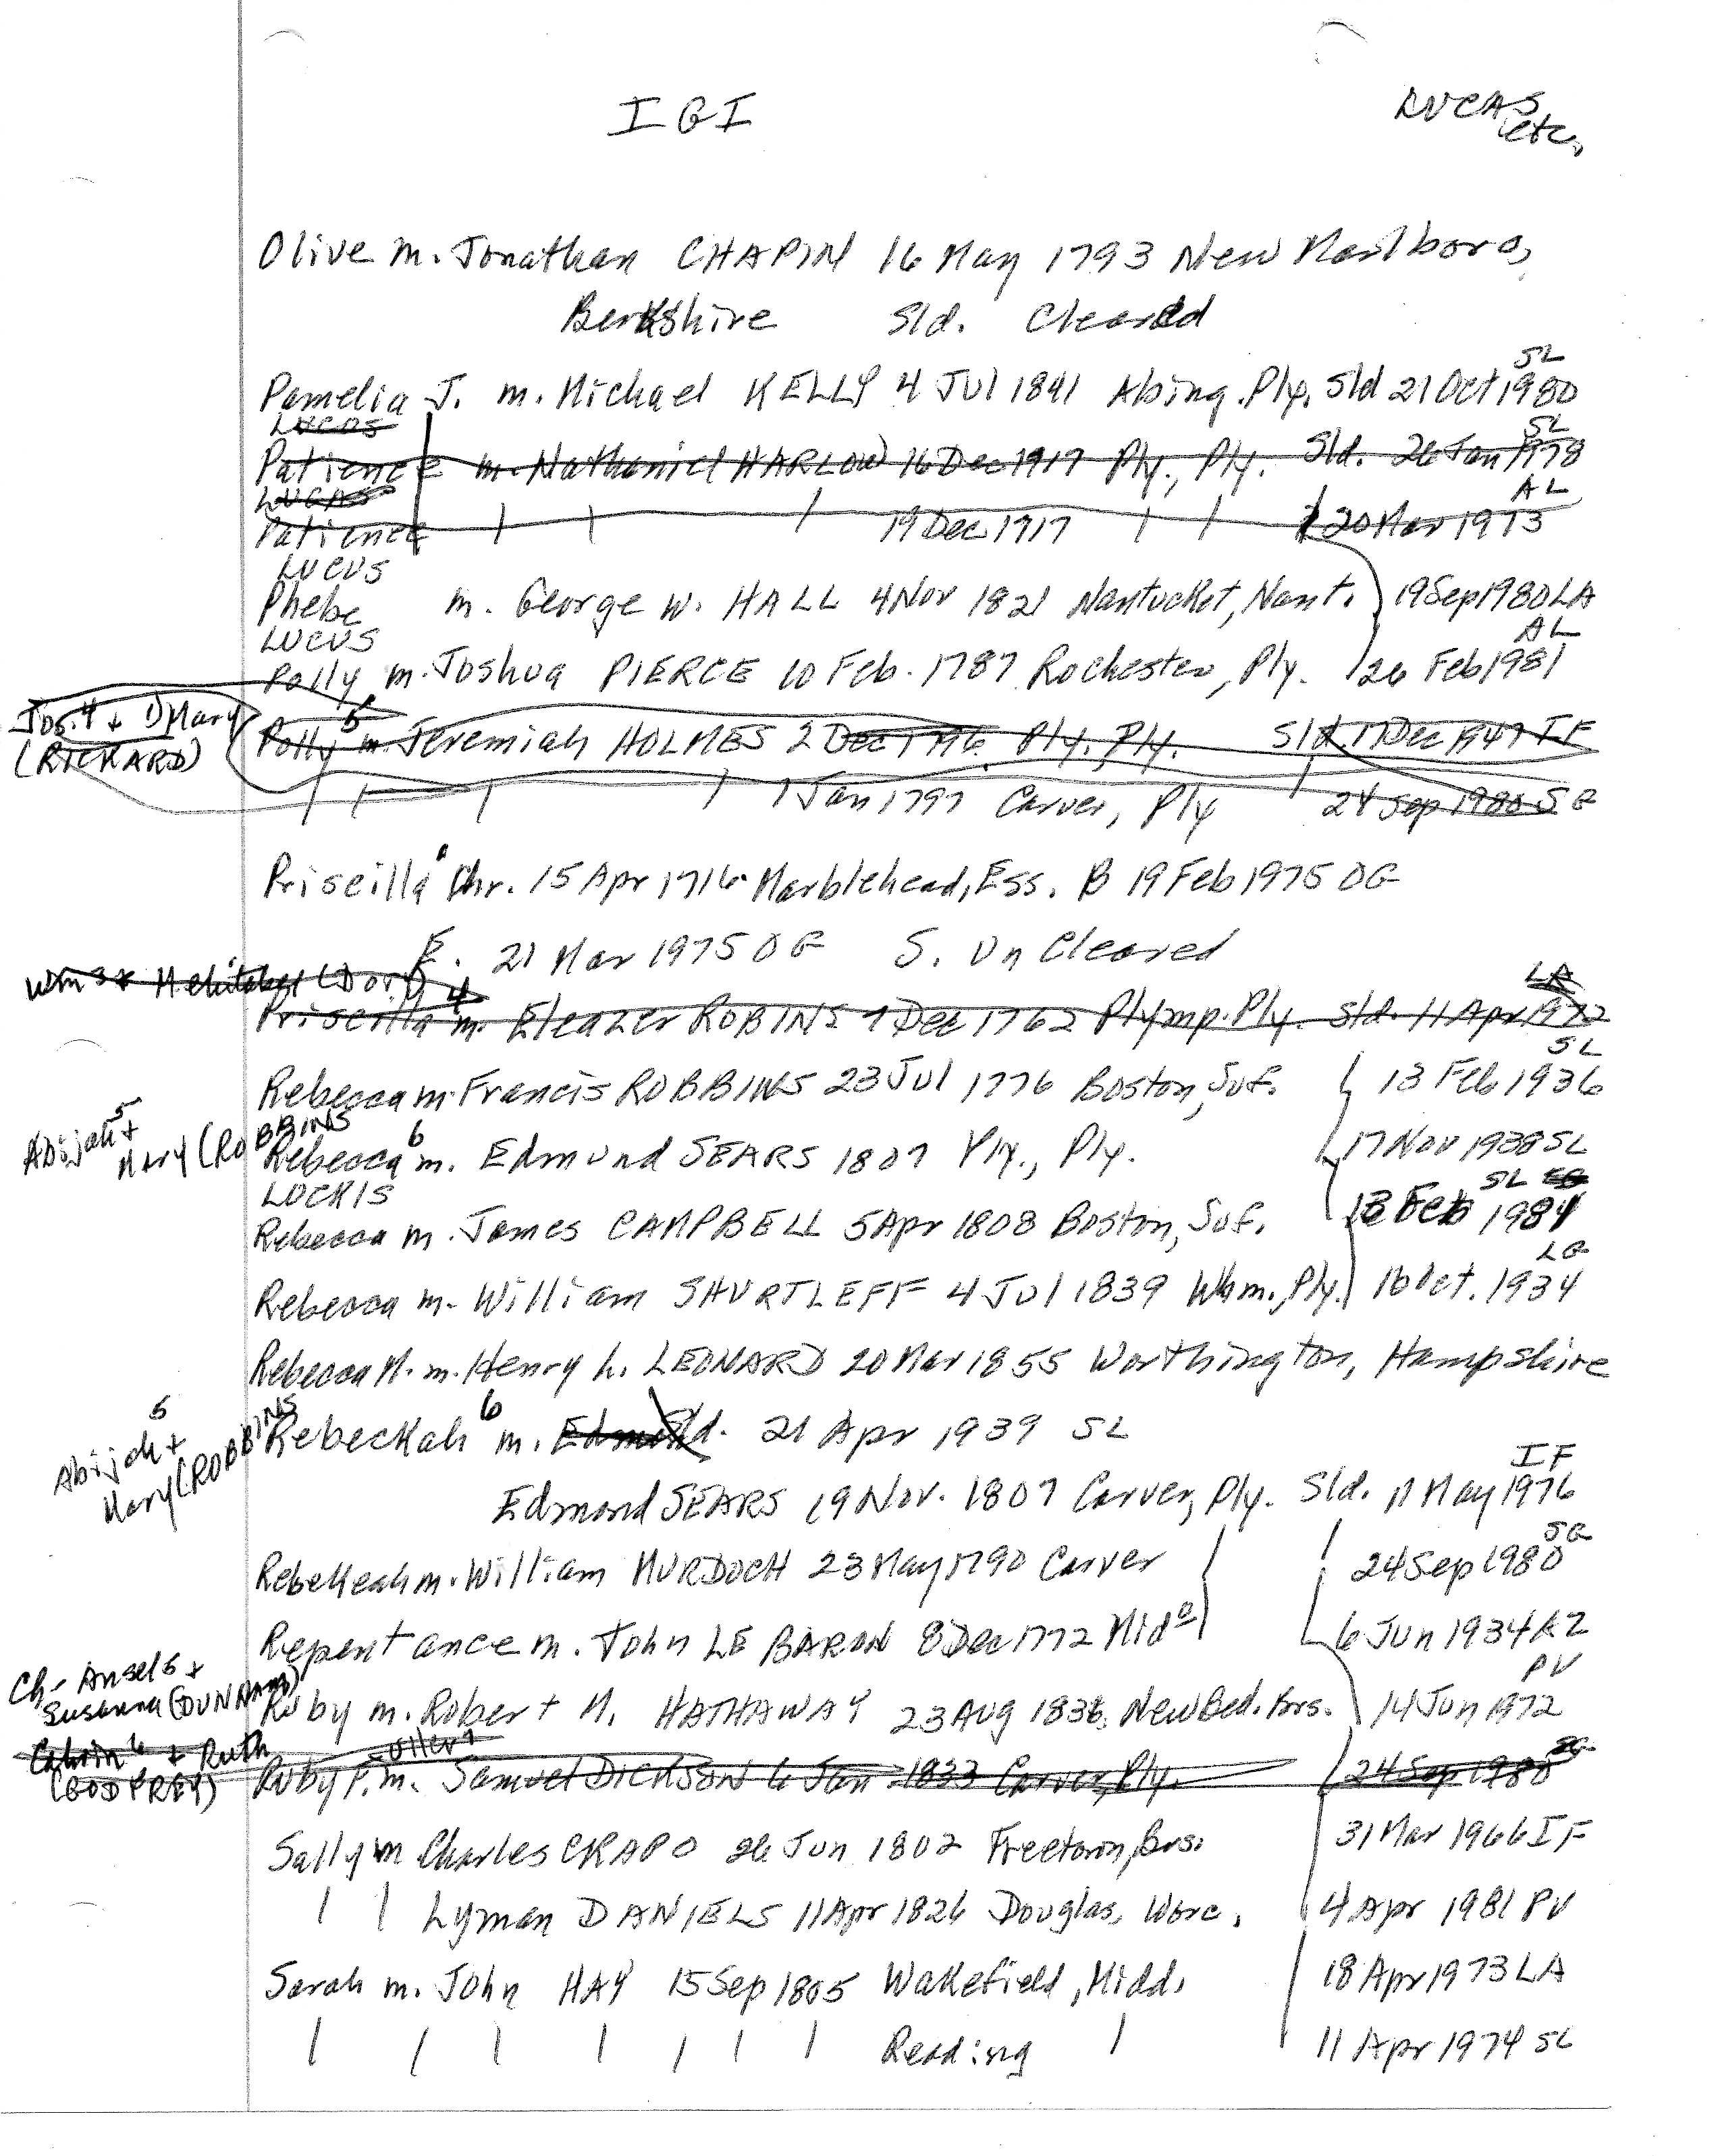 IGI
LUCAS
etc.
Olive m. Jonathan CHAPIN 16 May 1793 New Marlboro,
Berkshire Sld. Cleared
Pamelia J. m. Michael KELLY 4 Jul 1841 Abing. Ply. Sld 21 Oct 1980 SL
LUCAS
Patience m. Nathaniel HARLOW 16 Dec 1717 Ply., Ply. Sld. 26 Jan 1978 SL
LUCAS
Patience 19 Dec 1717 20 Mar 1973 AL
LUCUS
Phebe m. George W. HALL 4 Nov 1821 Nantucket, Nant. 19 Sep 1980 LA
LUCUS
Polly m. Joshua PIERCE 10 Feb. 1787 Rochester, Ply. 26 Feb 1981 AL
Jos.4 + 1) Mary
(RICKARD)
Polly 5 m. Jeremiah HOLMES 2 Dec 1796 Ply., Ply. Sld. 17 Dec 1947 IF
1 Jan 1797 Carver, Ply 24 Sep 1980 SG
Priscilla Chr. 15 Apr 1716 Marblehead, Ess. B 19 Feb 1975 OG
E. 21 Mar 1975 OG S. Un Cleared
Wm 3 + Mehitabel (Doty)
Priscilla 4 m. Eleazer ROBINS 7 Dec 1762 Plymp. Ply. Sld. 11 Apr 1972 LA
Rebecca m. Francis ROBBINS 23 Jul 1776 Boston, Suf. 13 Feb 1936 SL
Abijah 5 +
Mary (ROBBINS
Rebecca 6 m. Edmund SEARS 1807 Ply., Ply. 17 Nov 1938 SL
LOCKIS
Rebecca m. James CAMPBELL 5 Apr 1808 Boston, Suf. Feb 1984 SL
Rebecca m. William SHURTLEFF 4 Jul 1839 Whm., Ply. 16 Oct. 1934 LG
Rebecca M. m. Henry L. LEONARD 20 Mar 1855 Worthington, Hampshire
Abijah 5 +
Mary (ROBBINS
Rebeckah 6 m. Sld. 21 Apr 1939 SL
Edmond SEARS 19 Nov. 1807 Carver, Ply. Sld. 11 May 1976 IF
Rebekeah m. William MURDOCH 23 May 1790 Carver 24 Sep 1980 SG
Repentance m. John LE BARON 8 Dec 1772 Mid 6 Jun 1934 AZ
Ch - Ansel 5 +
Susanna (DUNHAM)
Ruby m. Robert M. HATHAWAY 23 Aug 1836 New Bed. Brs. 14 Jun 1972 PV
Calvin 6 + Ruth
(GODFREY)
Ruby F. m. Samuel DICKSON 6 Jan 1833 Carver, Ply. 24 Sep 1980 SG
Sally m Charles CRAPO 26 Jun 1802 Freetown, Brs. 31 Mar 1966 IF
Lyman DANIELS 11 Apr 1826 Douglas, Worc. 4 Apr 1981 PV
Sarah m. John HAY 15 Sep 1805 Wakefield, Midd. 18 Apr 1973 LA
Reading 11 Apr 1974 SL